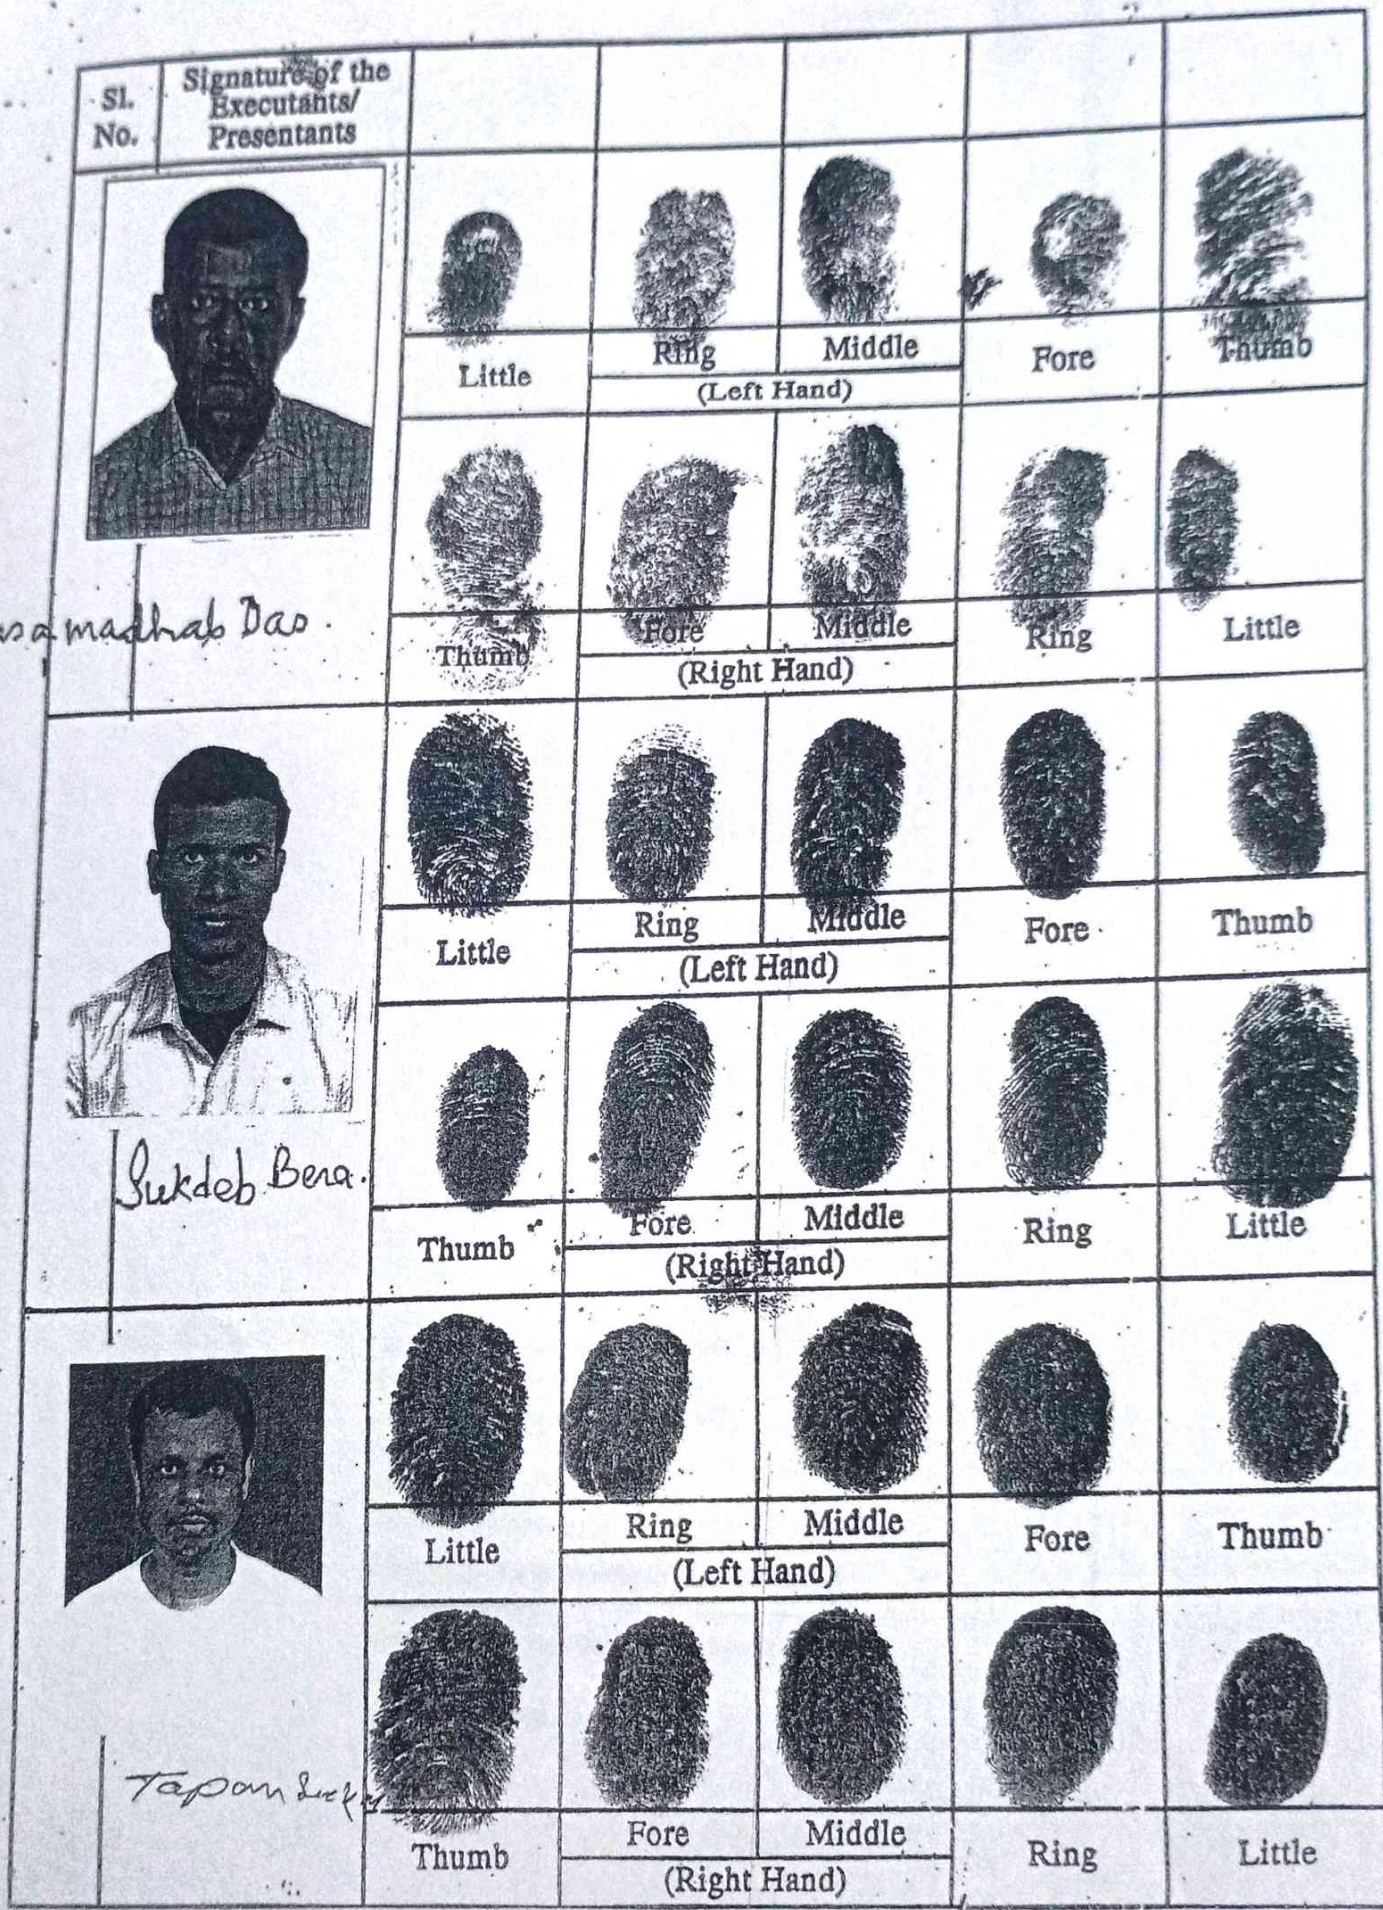 Sl.
No.
Signature of the
Executants/
Presentants
Little
Ring
Middle
Fore
Thumb
(Left Hand)
madhab Das.
Thumb
Fore
Middle
Ring
Little
(Right Hand)
Little
Ring
Middle
Fore
Thumb
(Left Hand)
Sukdeb Bera.
Thumb
Fore
Middle
Ring
Little
(Right Hand)
Little
Ring
Middle
Fore
Thumb
(Left Hand)
Tapan
Thumb
Fore
Middle
Ring
Little
(Right Hand)